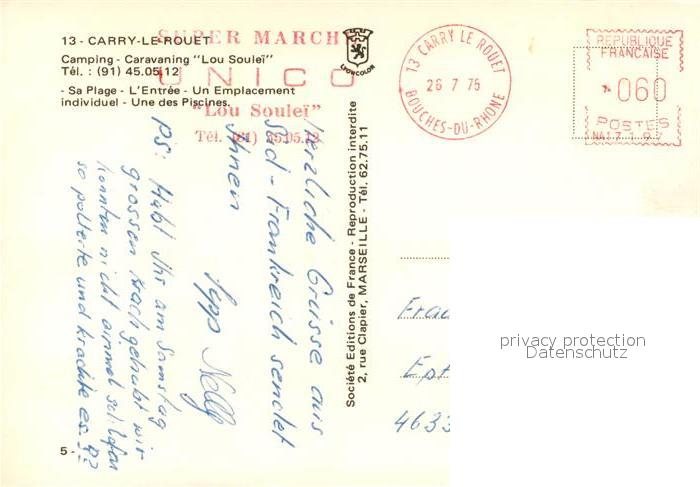 13 - CARRY-LE-ROUET
Camping - Caravaning "Lou Souleï"
Tél. : (91) 45.05.12
- Sa Plage - L'Entrée - Un Emplacement
individuel - Une des Piscines.
SUPER MARCH
UNICO
"Lou Souleï"
Tél. (91) 45.05.12
LYONCOLOR
13 CARRY LE ROUET
26 7 75
BOUCHES-DU-RHONE
REPUBLIQUE
FRANCAISE
060
POSTES
Herzliche Grüsse aus
Süd-Frankreich sendet
Ihnen
Sepp
PS: Habt Ihr am Samstag
grossen Krach gehabt wir
konnten nicht einmal schlafen
so polterte und krachte es. ??
Société Editions de France - Reproduction interdite
2, rue Clapier, MARSEILLE - Tél. 62.75.11
Frau
4633
privacy protection
Datenschutz
5 -